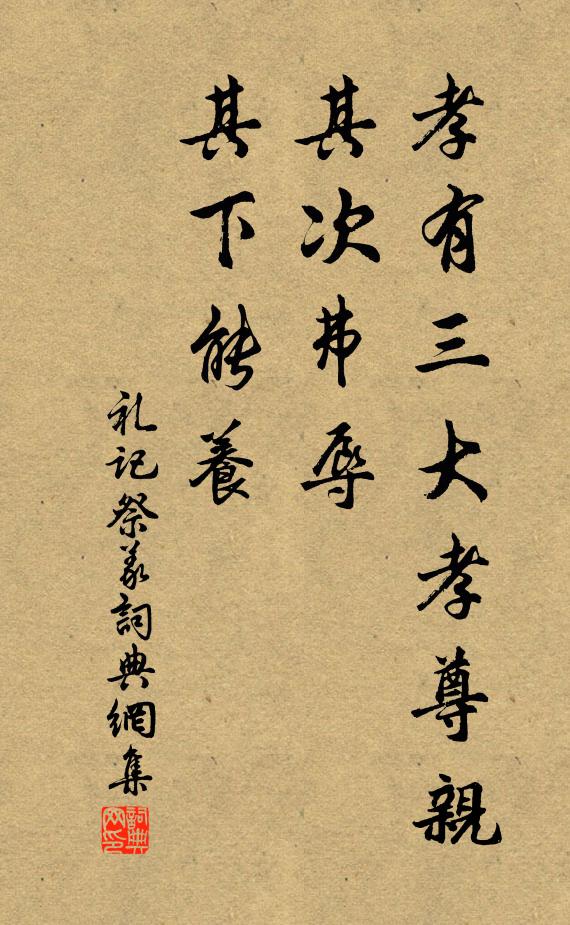 孝有三大孝尊親
其次弗辱
其下能養
礼記祭義詞典網集
詞典网印